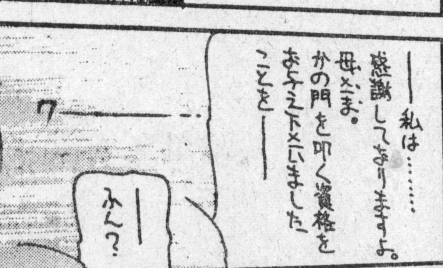 ──私は………
感謝しておりますよ。
母さま。
かの門を叩く資格を
お与え下さいました
ことを──
──ふん?